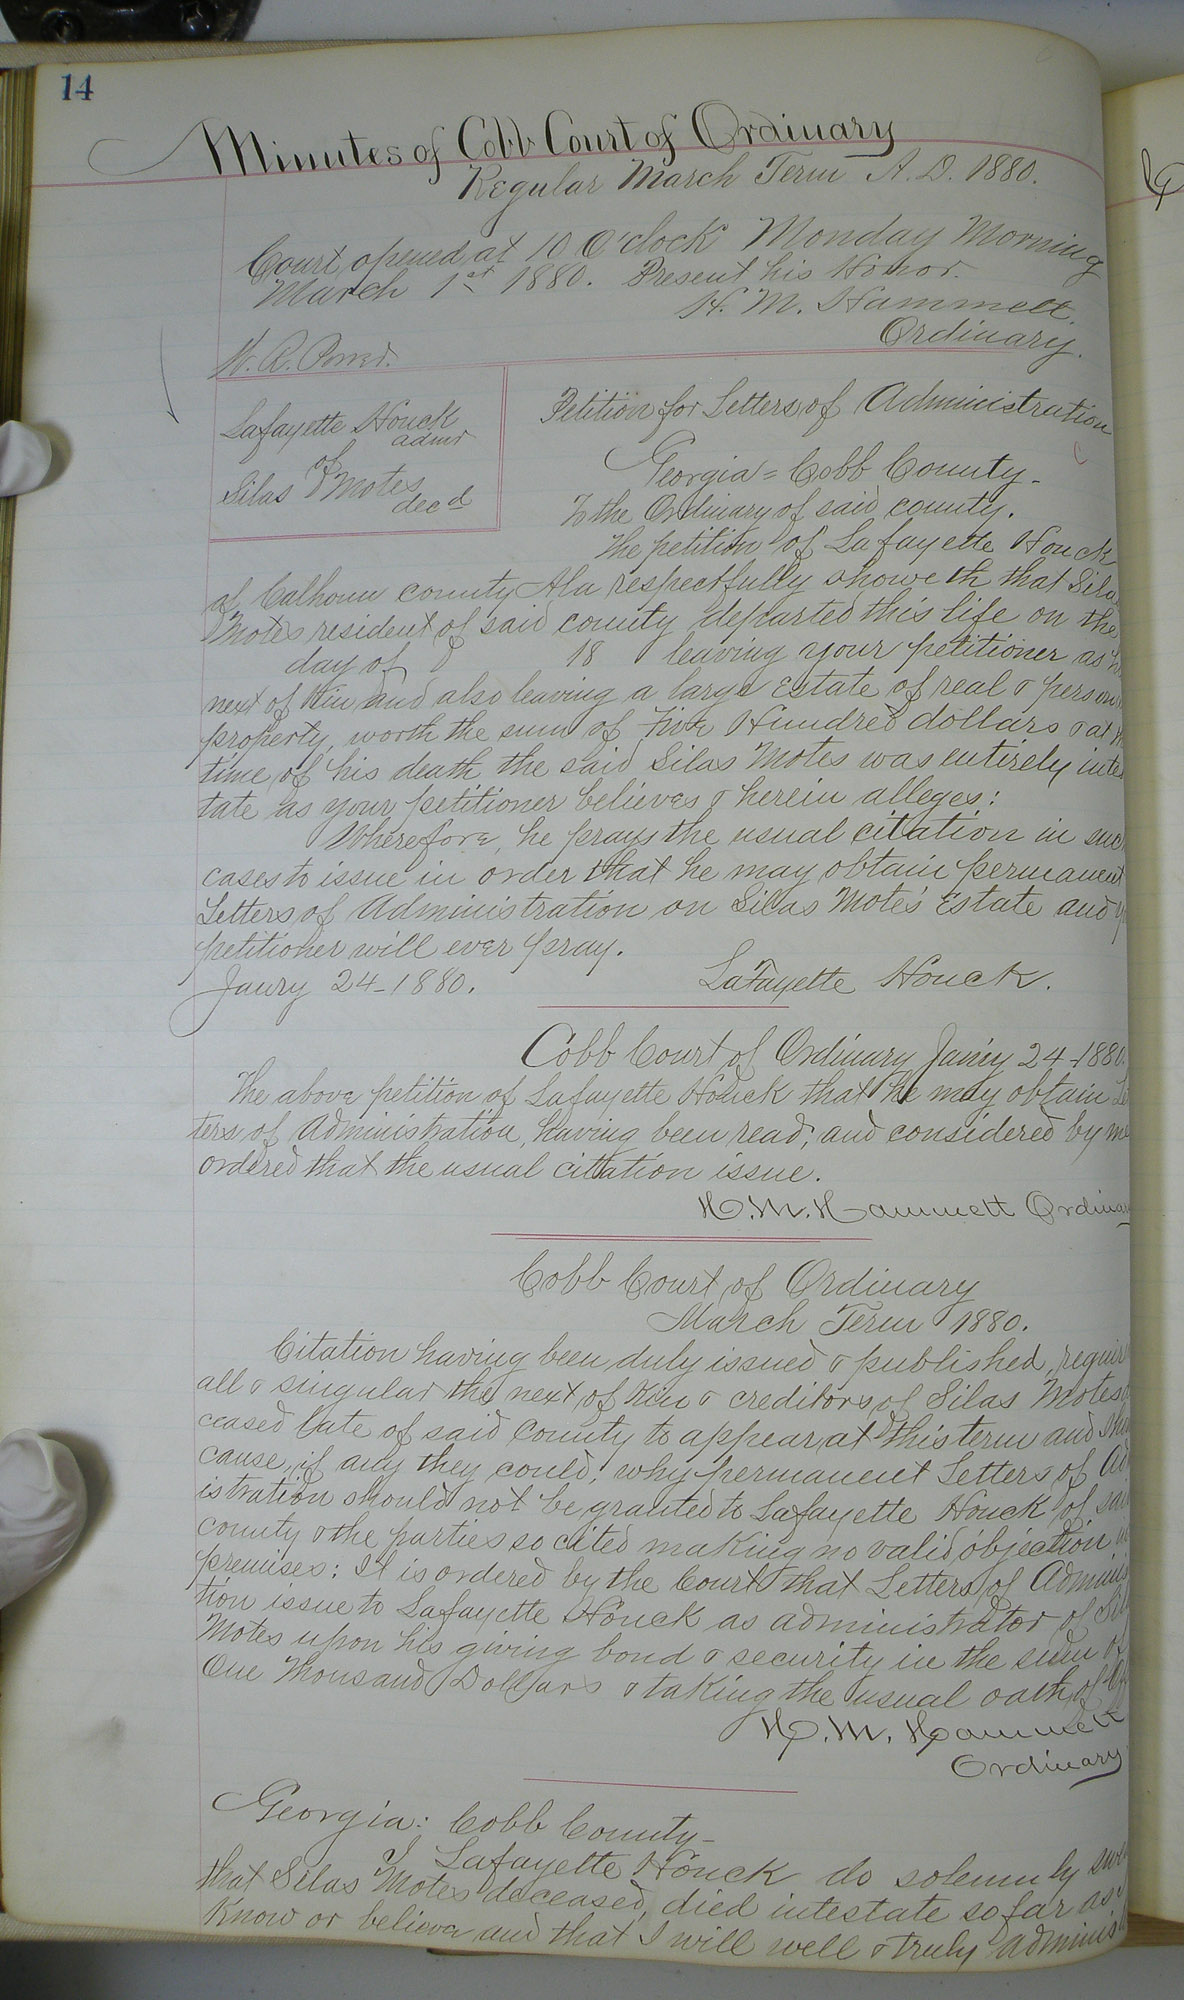 14
Minutes of Cobb Court of Ordinary
Regular March Term A.D. 1880.
Court opened at 10 O'clock Monday Morning
March 1st 1880. Present his Honor.
H. M. Hammett.
Ordinary.
W. R. Power.
Lafayette Houck
admr
of
Silas Motes
decd
Petition for Letters of Administration
Georgia = Cobb County -
To the Ordinary of said county.
The petition of Lafayette Houck
of Calhoun county Ala respectfully showeth that Sila
Motes resident of said county departed this life on the
day of 18 leaving your petitioner as
next of Kin and also leaving a large Estate of real & person
property, worth the sum of Five Hundred dollars & at
time of his death the said Silas Motes was entirely inte
tate as your petitioner believes & herein alleges:
Wherefore, he prays the usual citation in suc
cases to issue in order that he may obtain permanent
Letters of Administration on Silas Mote's Estate and
petitioner will ever pray.
Janry 24-1880. LaFayette Houck.
Cobb Court of Ordinary Janry 24-1880.
The above petition of Lafayette Houck that he may obtain Le
ters of Administration, having been read, and considered by me
ordered that the usual citation issue.
H. M. Hammett Ordinar
Cobb Court of Ordinary
March Term 1880.
Citation having been duly issued & published, requir
all & singular the next of Kin & creditors of Silas Motes
ceased late of said county to appear at this term and sho
cause, if any they could, why permanent Letters of Ad
istration should not be granted to Lafayette Houck of sai
county & the parties so cited making no valid objection in
premises: It is ordered by the Court that Letters of Adminis
tion issue to Lafayette Houck as administrator of Sil
Motes upon his giving bond & security in the sum of
One Thousand Dollars & taking the usual oath of
H. M. Hammett
Ordinary
Georgia: Cobb County -
I Lafayette Houck do solemnly swe
that Silas Motes deceased, died intestate so far as
Know or believe and that I will well & truly adminis